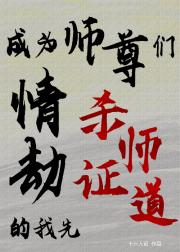 成为师尊们
情劫
的我先
杀师
证道
十六人诏 作品